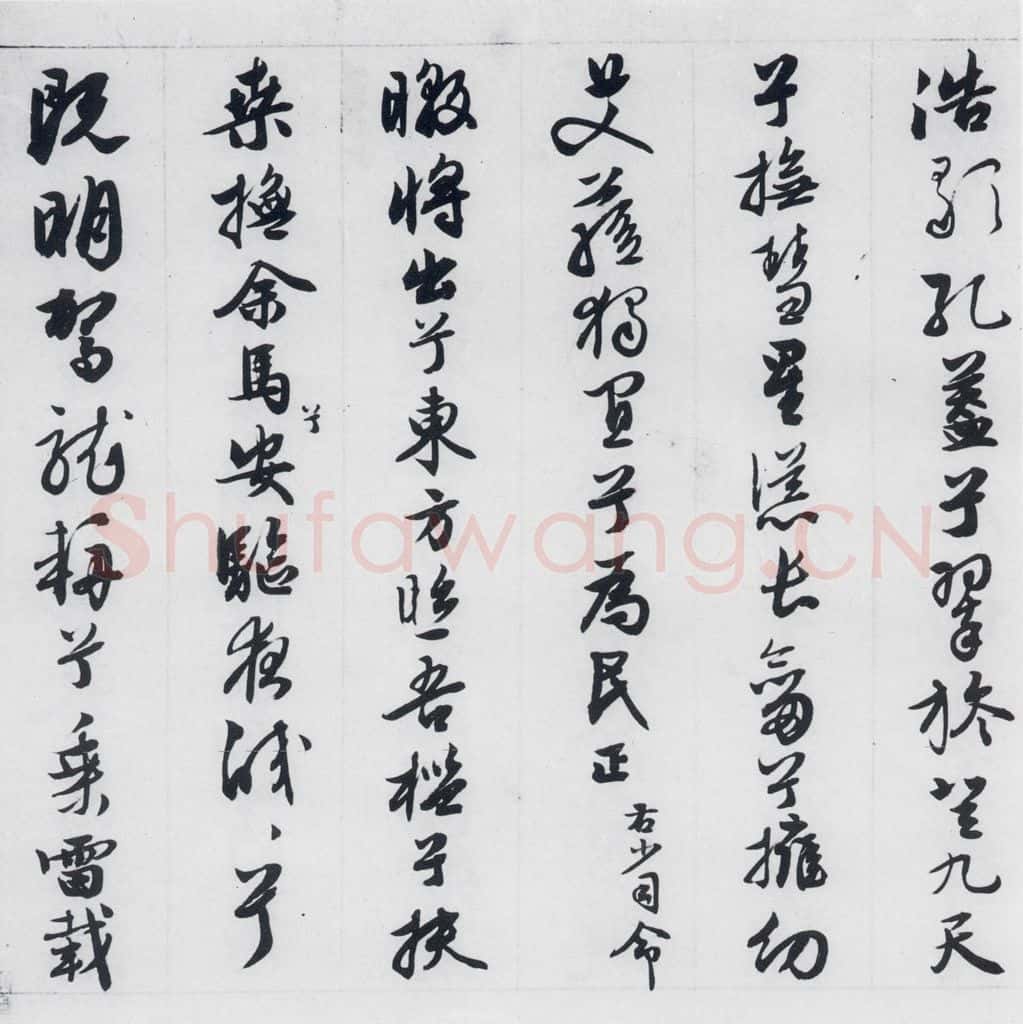 浩歌孔蓋兮翠旍登九天
兮撫彗星慫長劍兮擁幼
艾蓀獨宜兮為民正
右少司命
暾將出兮東方照吾檻兮扶
桑撫余馬兮安驅夜皎、兮
既明駕龍輈兮乘雷載
Shufawang.CN